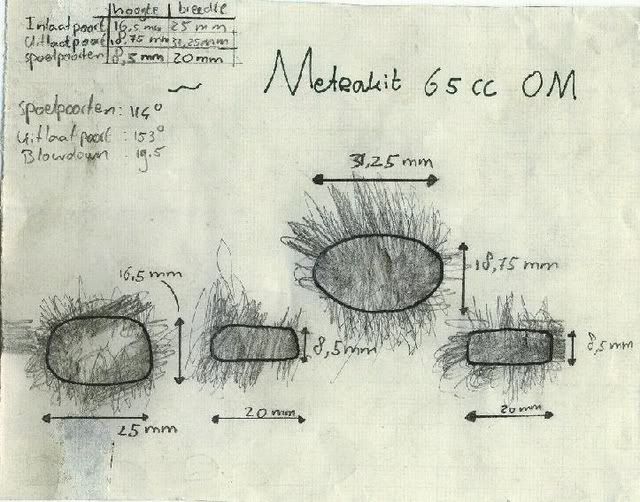 hoogte breedte
Inlaatpoort 16,5 mm 25 mm
Uitlaatpoort 18,75 mm 31,25mm
spoelpoorten 8,5 mm 20 mm
Metrakit 65cc OM
spoelpoorten: 114°
Uitlaatpoort: 153°
Blowdown: 19.5
31,25 mm
18,75 mm
16,5 mm
8,5mm
8,5mm
25 mm
20 mm
20 mm